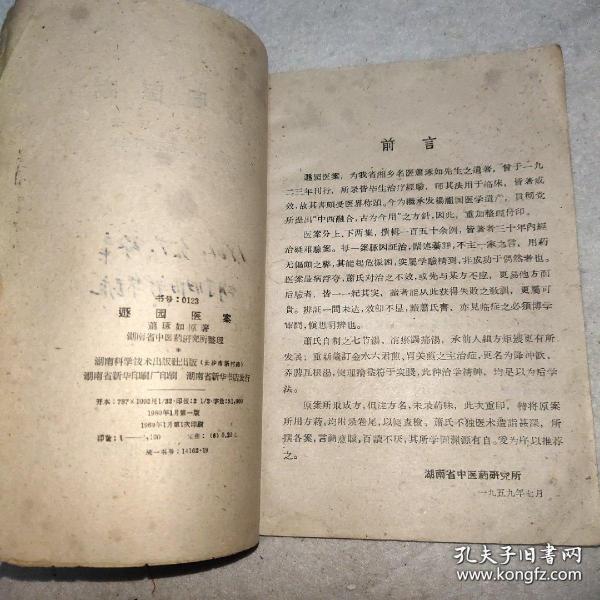 书号：0123
遯园医案
萧琢如原著
湖南省中医药研究所整理
湖南科学技术出版社出版（长沙市新村路）
湖南省新华印刷厂印刷 湖南省新华书店发行
开本：787×1092毫1/32·印张：
1960年1月第一版
1960年1月第1次印刷
统一书号：14162·19
前言
遯园医案，为我省湘乡名医萧琢如先生之遗著，曾于一九
二三年刊行，所录皆毕生治疗经验，即其法用于临床，皆著成
效，故其书颇受医界称颂。今为继承发扬祖国医学遗产，贯彻党
所提出“中西融合，古为今用”之方针，因此，重加整理付印。
医案分上、下两集，撰辑一百五十余例，皆著者三十年内经
治疑难验案。每一案脉因证治，阐述綦详，不主一家之言，用药
无偏颇之弊，其能起危振困，实属学验精到，非成功于偶然者也。
医案最病浮夸，萧氏对治之不效，或先与某方不应，更易他方而
后验者，皆一一纪其实，
可贵。辨证一间未达，效印不显，
闻，慎思明辨也。
萧氏自制之七节汤、
发；重新厘订金水六君煎、胃关煎之主治症，更名为降冲饮、
养脾瓦根汤，使理论紧符于实践，此种治学精神，均足以为后学
法。
原案所取成方，但注方名，未录药味，此次重印，特将原案
所用方药，均附录卷尾，以便查检。萧氏不独医术造诣甚深，所
撰各案，言简意赅，百读不厌，其所学固渊源有自。爰为序以推荐
之。
湖南省中医药研究所
一九五九年七月
孔夫子旧书网
www.kongfz.com